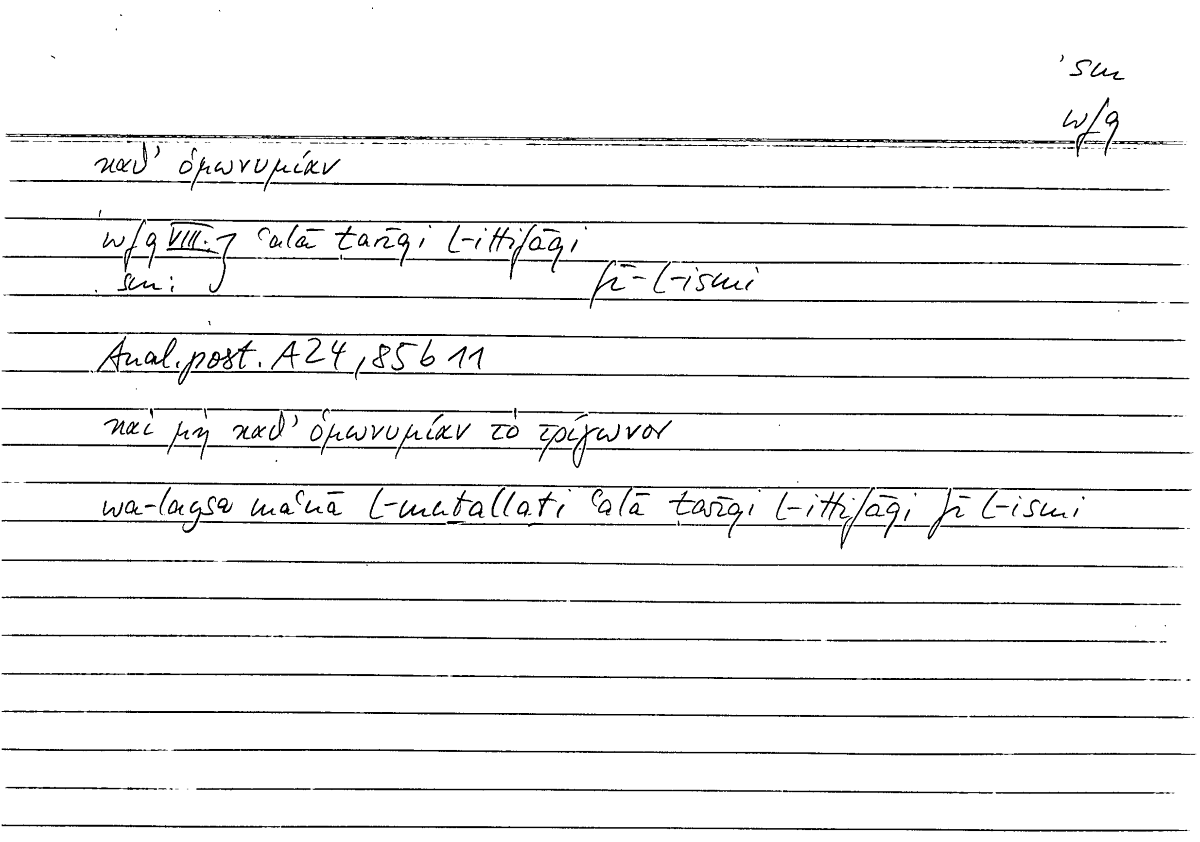 'sm
wfq
καθ' ὁμωνυμίαν
wfq VIII.} ʿalā ṭarīqi l-ittifāqi
sm:
fī-l-ismi
Anal.post. A24, 85b11
καὶ μὴ καθ' ὁμωνυμίαν τὸ τρίγωνον
wa-laysa maʿnā l-muṯallaṯi ʿalā ṭarīqi l-ittifāqi fī l-ismi